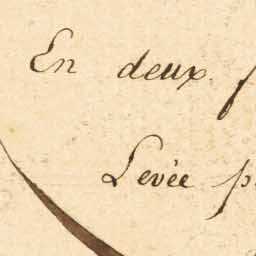 En deux f
Levée p